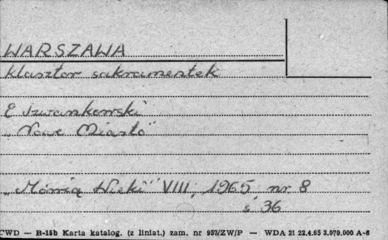 WARSZAWA
klasztor sakramentek
E Szwankowski
"Nowe Miasto"
"Mówią Wieki" VIII, 1965 nr 8
s 36
CWD — B-15b Karta katalog. (z liniat.) zam. nr 957/ZW/P — WDA 21 22.4.65 3.070.000 A-6